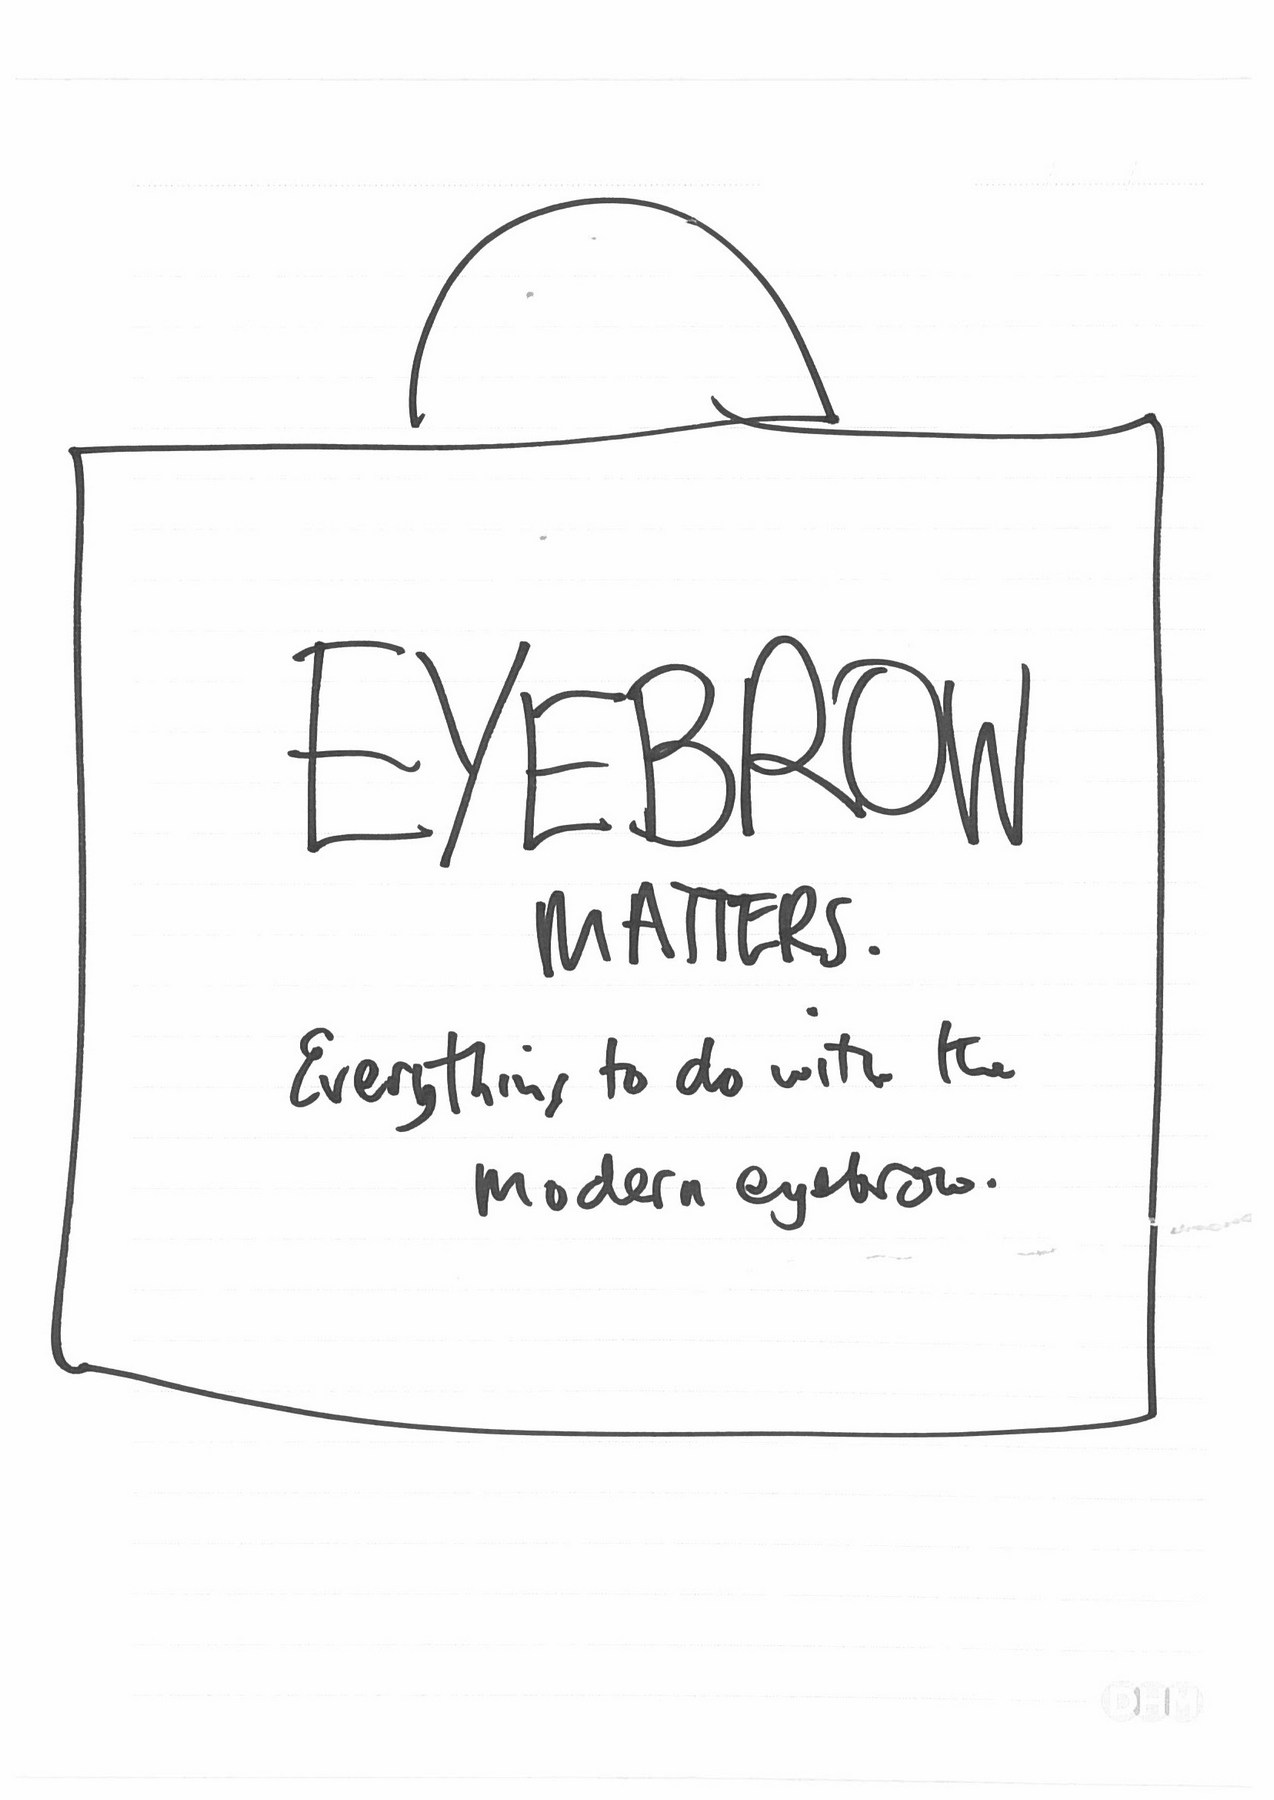 EYEBROW
MATTERS.
Everything to do with the
modern eyebrow.
DHM